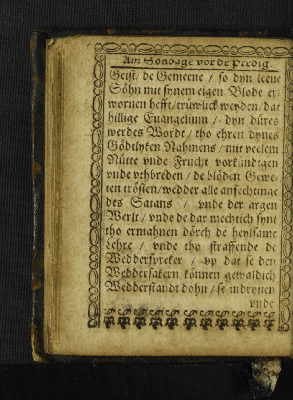 Am Sondage vor de Predig.
Geist / de Gemeene / so dyn leeue
Söhn mit synem eigen Blode er
woruen hefft / trüwlick weyden / dat
hillige Euangelium / dyn düres
werdes Wordt / tho ehren dynes
Gödtlyken Nahmens / mit veelem
Nütte vnde Frucht vorkündigen
vnde vthbreden / de blöden Gewe-
ten trösten / wedder alle anfechtinge
des Satans / vnde der argen
Werlt / vnde de dar mechtich synt
tho ermahnen dörch de heylsame
Lehre / vnde tho straffende de
Wedderspreker / vp dat se den
Weddersakern können gewaldich
Wedderstandt dohn / se indryuen
vnde